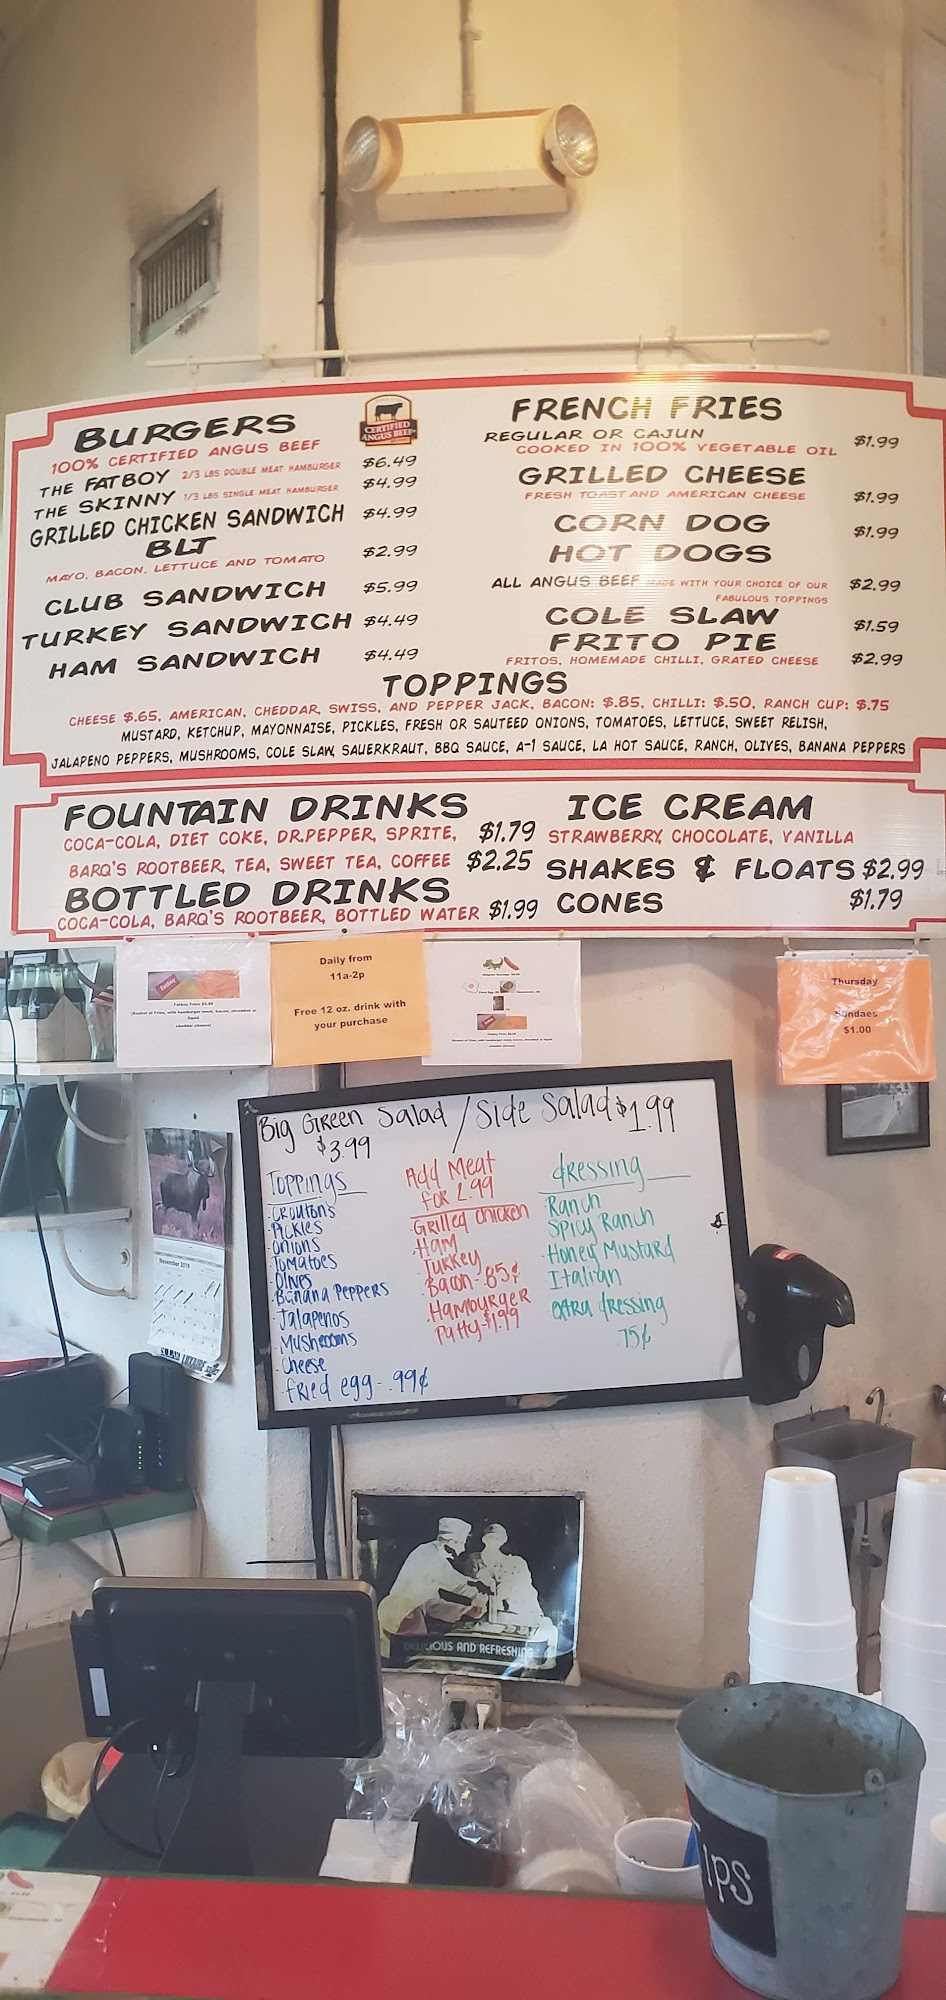 BURGERS
100% CERTIFIED ANGUS BEEF
CERTIFIED
ANGUS BEEF
THE FATBOY 2/3 LBS DOUBLE MEAT HAMBURGER $6.49
THE SKINNY 1/3 LBS SINGLE MEAT HAMBURGER $4.99
GRILLED CHICKEN SANDWICH $4.99
BLT $2.99
MAYO, BACON, LETTUCE AND TOMATO
CLUB SANDWICH $5.99
TURKEY SANDWICH $4.49
HAM SANDWICH $4.49
FRENCH FRIES
REGULAR OR CAJUN $1.99
COOKED IN 100% VEGETABLE OIL
GRILLED CHEESE
FRESH TOAST AND AMERICAN CHEESE $1.99
CORN DOG $1.99
HOT DOGS
ALL ANGUS BEEF MADE WITH YOUR CHOICE OF OUR $2.99
FABULOUS TOPPINGS
COLE SLAW $1.59
FRITO PIE
FRITOS, HOMEMADE CHILLI, GRATED CHEESE $2.99
TOPPINGS
CHEESE $.65, AMERICAN, CHEDDAR, SWISS, AND PEPPER JACK, BACON: $.85, CHILLI: $.50, RANCH CUP: $.75
MUSTARD, KETCHUP, MAYONNAISE, PICKLES, FRESH OR SAUTEED ONIONS, TOMATOES, LETTUCE, SWEET RELISH,
JALAPENO PEPPERS, MUSHROOMS, COLE SLAW, SAUERKRAUT, BBQ SAUCE, A-1 SAUCE, LA HOT SAUCE, RANCH, OLIVES, BANANA PEPPERS
FOUNTAIN DRINKS
COCA-COLA, DIET COKE, DR.PEPPER, SPRITE, $1.79
BARQ'S ROOTBEER, TEA, SWEET TEA, COFFEE $2.25
BOTTLED DRINKS
COCA-COLA, BARQ'S ROOTBEER, BOTTLED WATER $1.99
ICE CREAM
STRAWBERRY, CHOCOLATE, VANILLA
SHAKES & FLOATS $2.99
CONES $1.79
Daily from
11a-2p
Free 12 oz. drink with
your purchase
Thursday
Sundaes
$1.00
Big Green Salad / Side Salad $1.99
$3.99
Toppings
-Croutons
-Pickles
-Onions
-Tomatoes
-Olives
-Banana Peppers
-Jalapenos
-Mushrooms
-Cheese
-fried egg- .99¢
Add Meat
for 2.99
-Grilled Chicken
-Ham
-Turkey
-Bacon- 85¢
-Hamburger
Patty-$1.99
dressing
-Ranch
-Spicy Ranch
-Honey Mustard
-Italian
extra dressing
75¢
November 2019
DELICIOUS AND REFRESHING
Tips